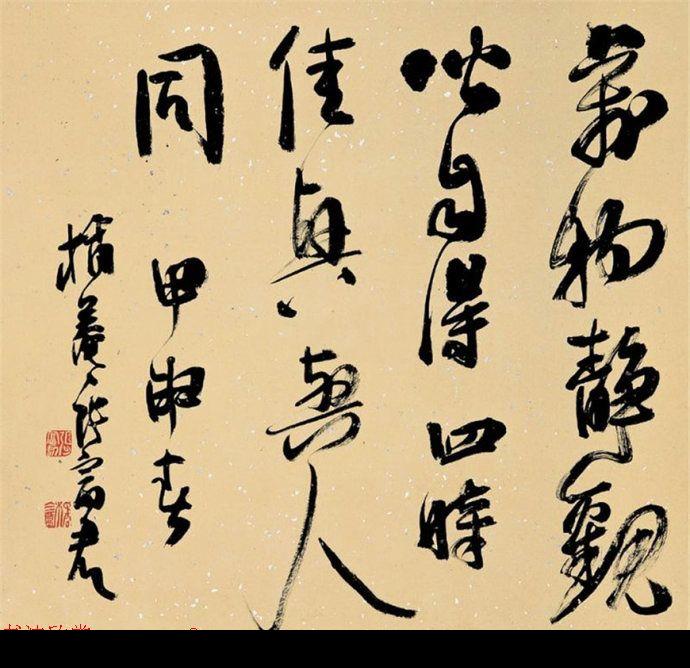 萬物靜觀
皆自得四時
佳興與人
同 甲申春